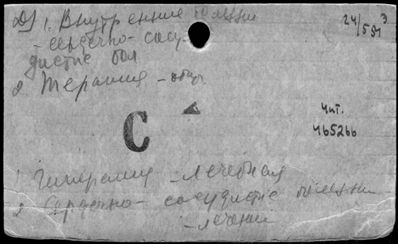 1. Внутренние болезни
- сердечно-сосу-
дистые бол
2 Терапия - общ
24/591 3
Чит.
465266
С
1 Гиперемия - лечебная
2 Сердечно-сосудистые болезни
- лечение